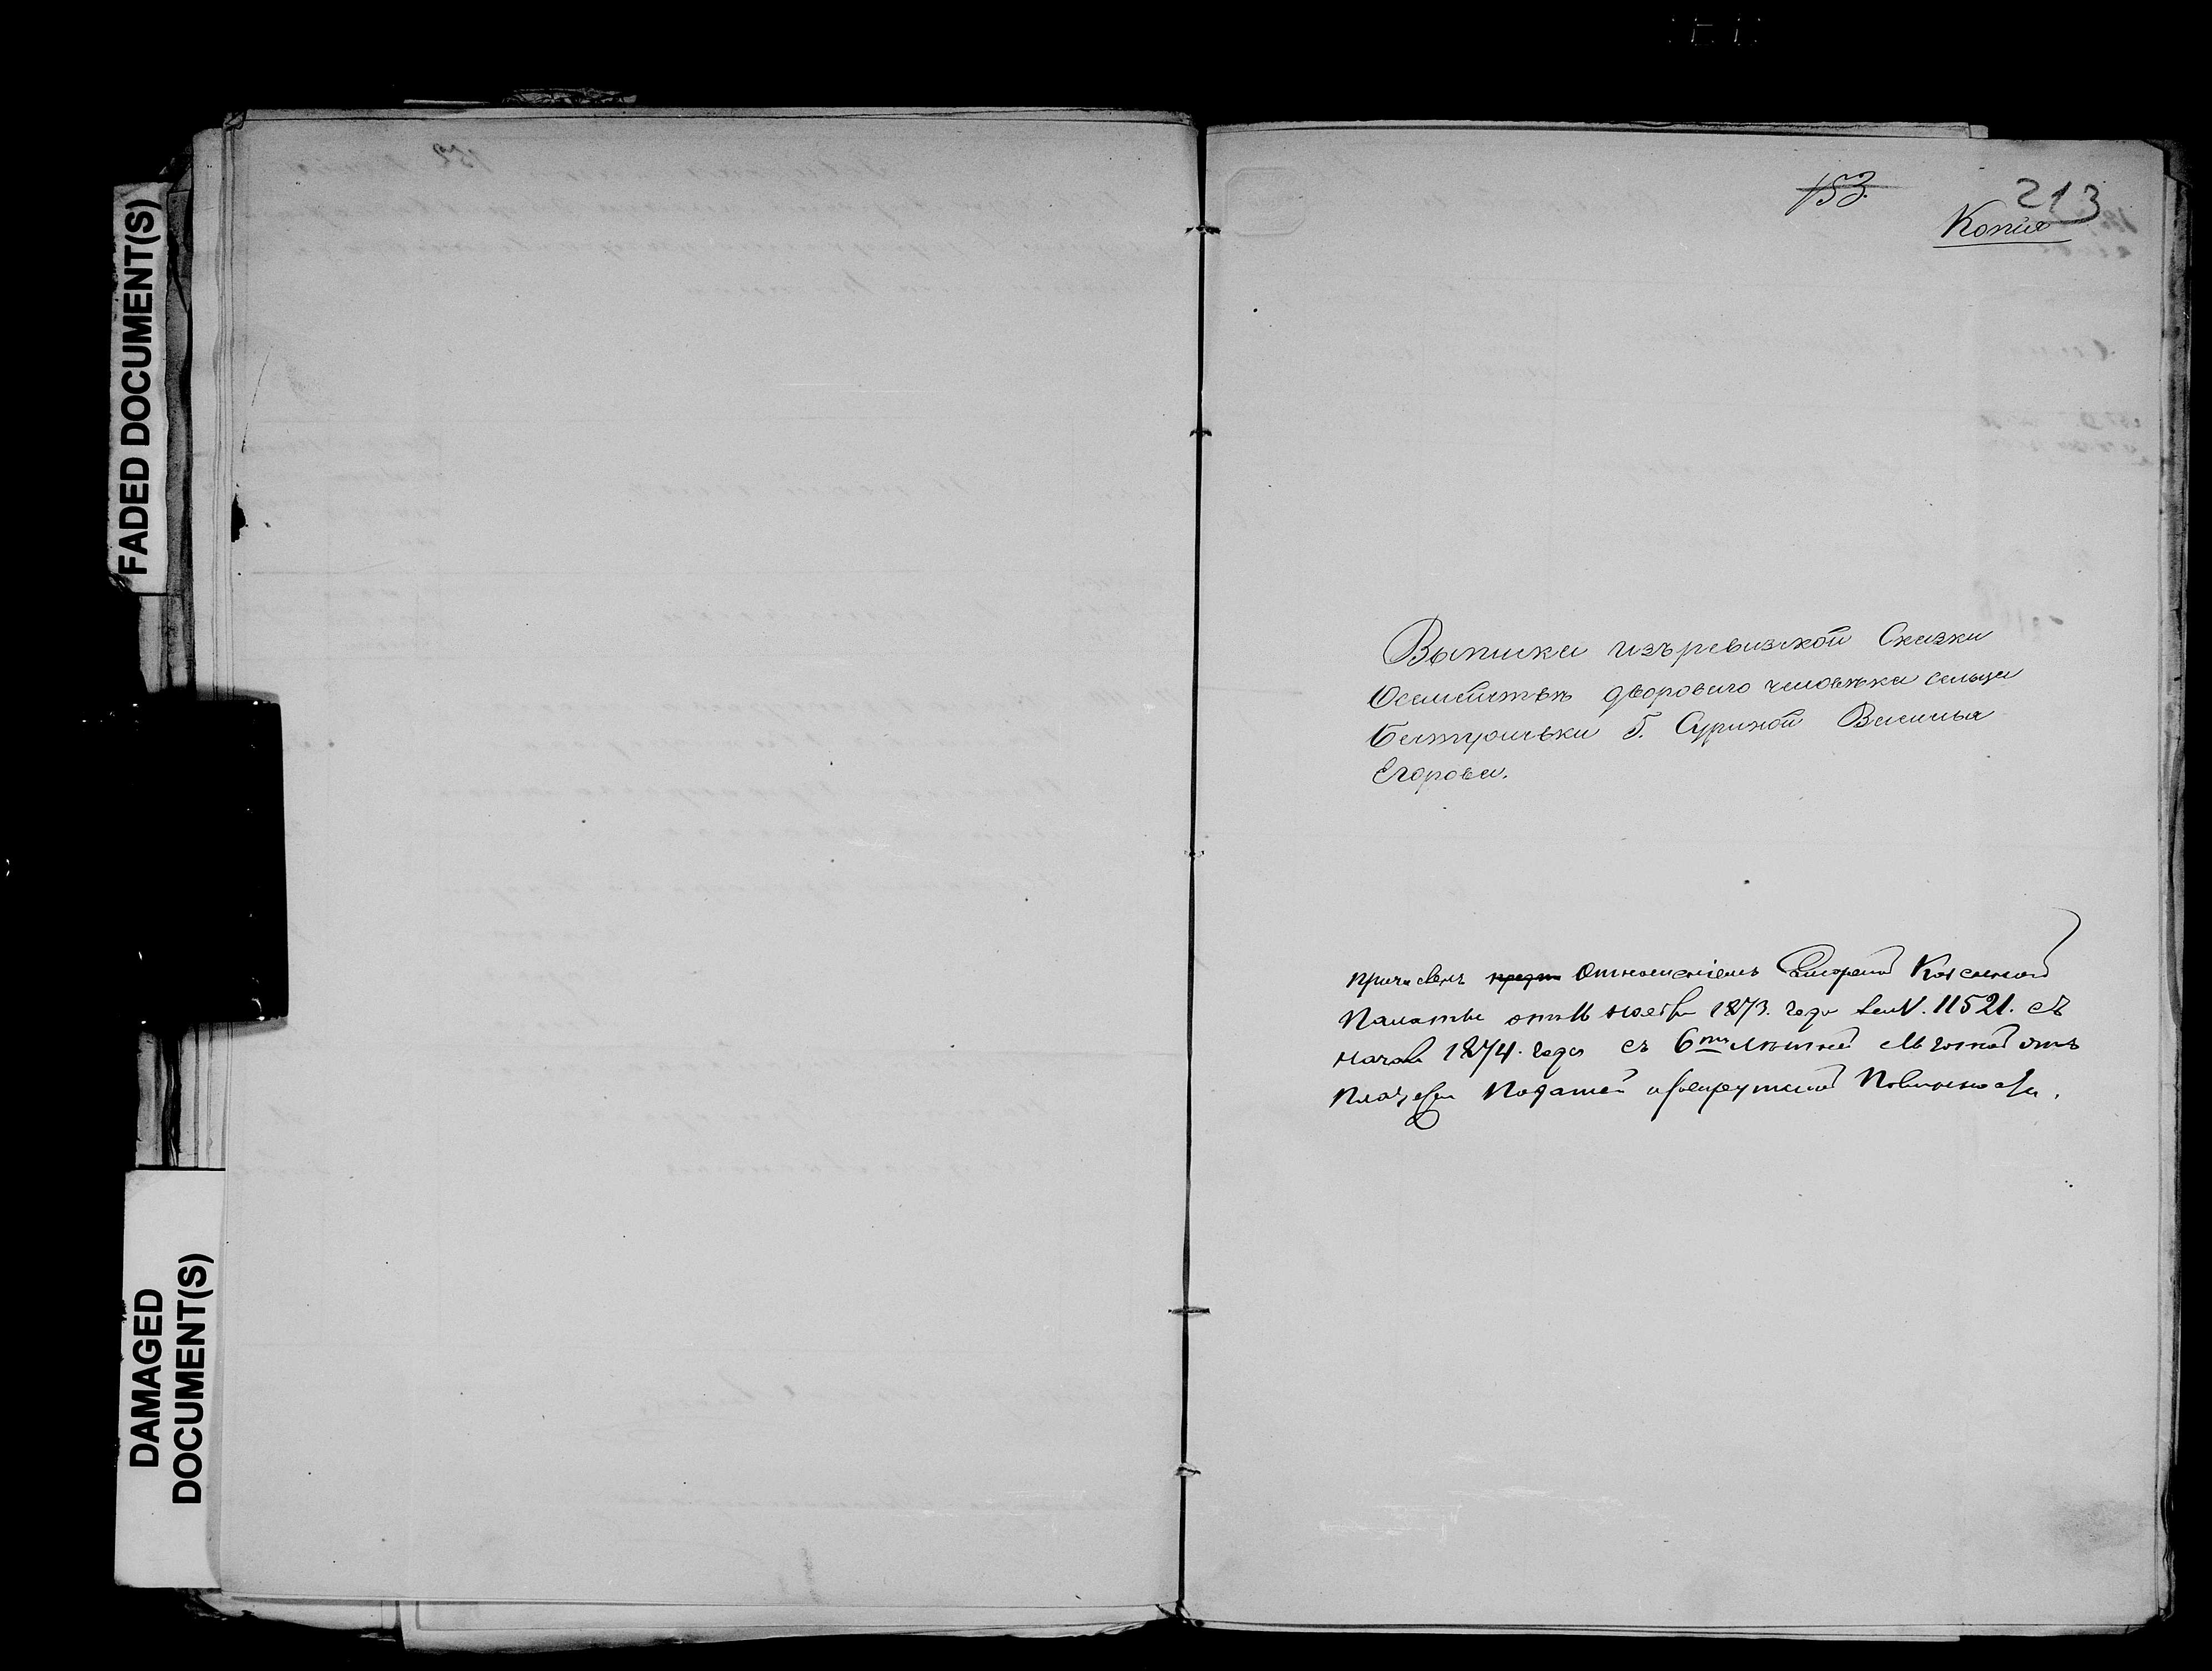 FADED DOCUMENT(S)
DAMAGED
DOCUMENT(S)
153.
213
Копия
Выписка изъ ревизской Сказки
О семействѣ двороваго человѣка сельца
Г. Суриной Василья
Егорова.
Причисленъ Отношеніемъ Казенной
Палаты отъ 11 ноября 1873. года за N. 11521. съ
начала 1874. года съ 6ти лѣтней льготой отъ
платежа Податей и рекрутской Повинности.